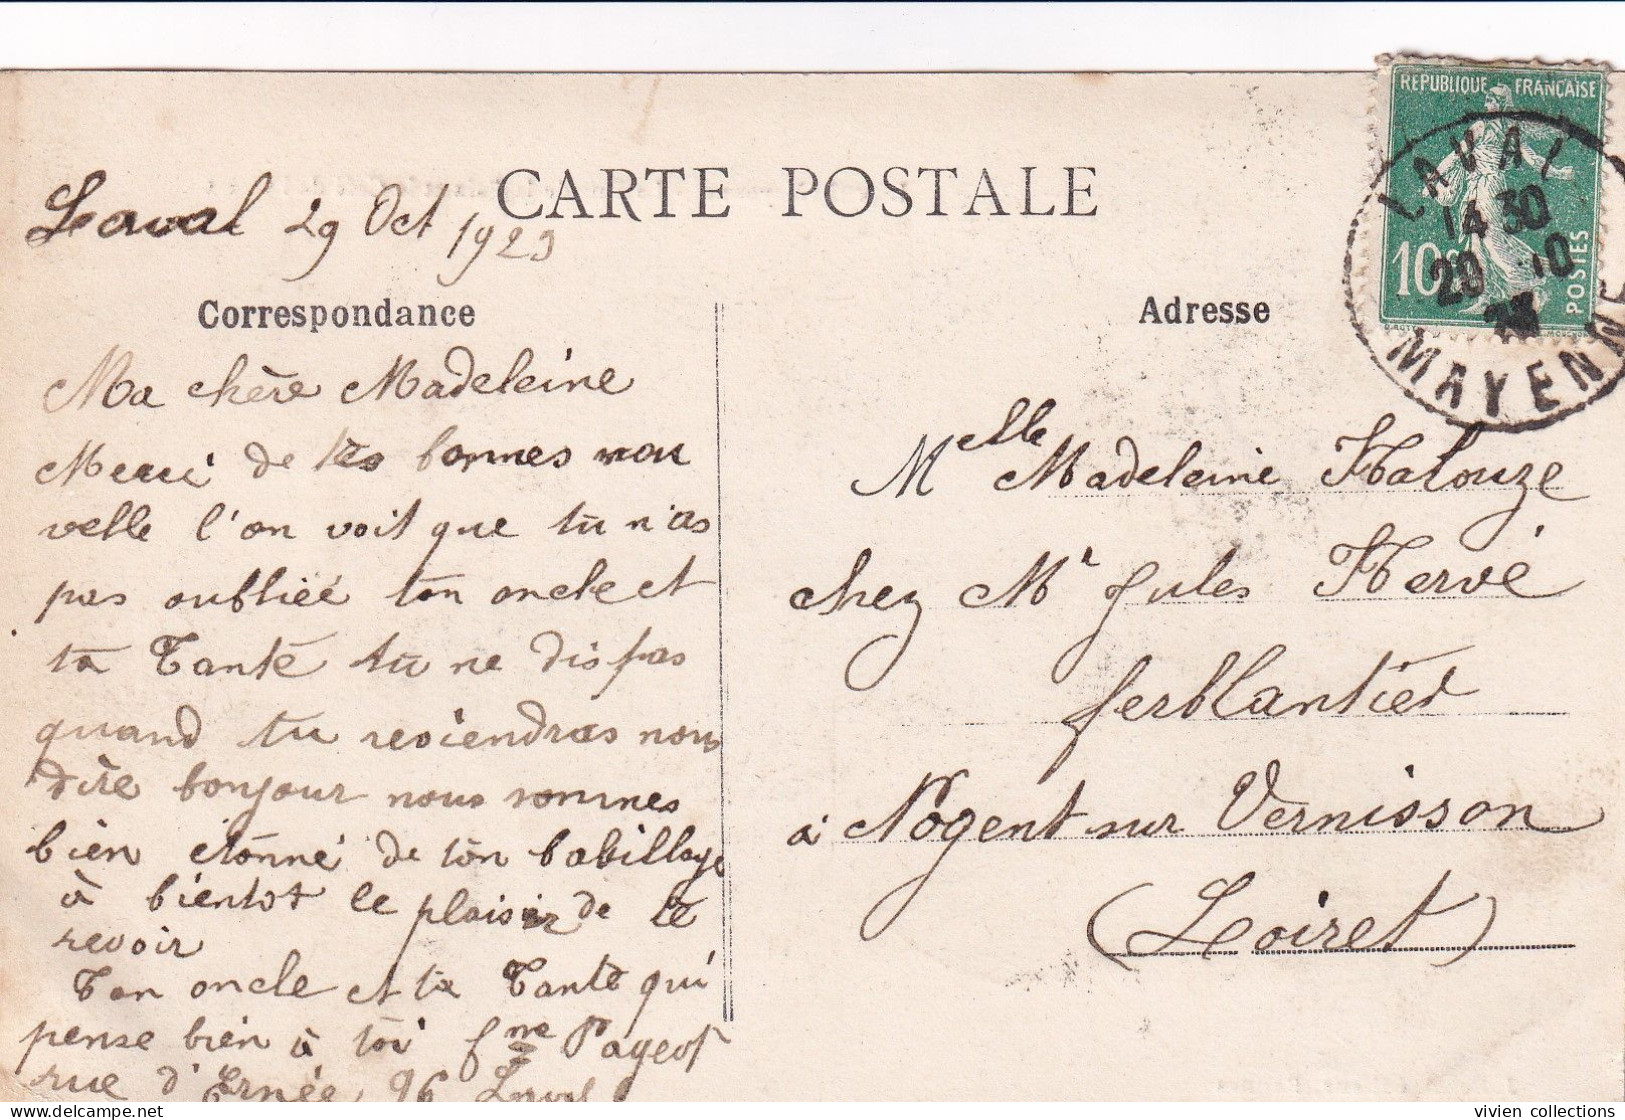 REPUBLIQUE FRANÇAISE
10c
POSTES
LAVAL
14 30
29 10
MAYENNE
CARTE POSTALE
Laval 29 Oct 1923
Correspondance
Ma chère Madeleine
Merci de tes bonnes nou
velle l'on voit que tu n'as
pas oubliée ton oncle et
ta Tante tu ne dis pas
quand tu reviendras nous
dire bonjour nous sommes
bien étonné de ton babillage
à bientot le plaisir de te
revoir
Ton oncle et ta Tante qui
pense bien à toi fme Pageot
rue d'Ernée, 96 Laval
Adresse
Melle Madeleine Halouze
chez Mr Jules Hervé
ferblantier
à Nogent sur Vernisson
(Loiret)
vivien collections